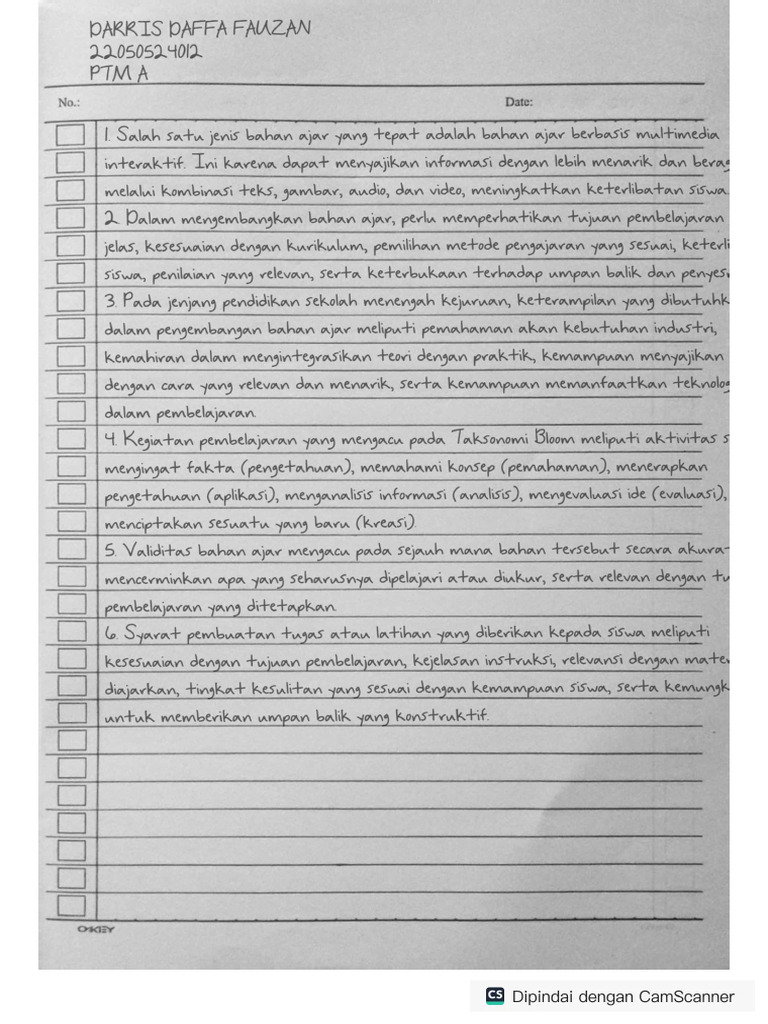 DARRIS DAFFA FAUZAN
22050524012
PTM A
No.:
Date:
1. Salah satu jenis bahan ajar yang tepat adalah bahan ajar berbasis multimedia
interaktif. Ini karena dapat menyajikan informasi dengan lebih menarik dan berag
melalui kombinasi teks, gambar, audio, dan video, meningkatkan keterlibatan siswa.
2. Dalam mengembangkan bahan ajar, perlu memperhatikan tujuan pembelajaran
jelas, kesesuaian dengan kurikulum, pemilihan metode pengajaran yang sesuai, keterli
siswa, penilaian yang relevan, serta keterbukaan terhadap umpan balik dan penyes
3. Pada jenjang pendidikan sekolah menengah kejuruan, keterampilan yang dibutuhk
dalam pengembangan bahan ajar meliputi pemahaman akan kebutuhan industri,
kemahiran dalam mengintegrasikan teori dengan praktik, kemampuan menyajikan
dengan cara yang relevan dan menarik, serta kemampuan memanfaatkan teknolog
dalam pembelajaran.
4. Kegiatan pembelajaran yang mengacu pada Taksonomi Bloom meliputi aktivitas s
mengingat fakta (pengetahuan), memahami konsep (pemahaman), menerapkan
pengetahuan (aplikasi), menganalisis informasi (analisis), mengevaluasi ide (evaluasi),
menciptakan sesuatu yang baru (kreasi).
5. Validitas bahan ajar mengacu pada sejauh mana bahan tersebut secara akura
mencerminkan apa yang seharusnya dipelajari atau diukur, serta relevan dengan tu
pembelajaran yang ditetapkan.
6. Syarat pembuatan tugas atau latihan yang diberikan kepada siswa meliputi
kesesuaian dengan tujuan pembelajaran, kejelasan instruksi, relevansi dengan mater
diajarkan, tingkat kesulitan yang sesuai dengan kemampuan siswa, serta kemungk
untuk memberikan umpan balik yang konstruktif.
O-KEY
CS Dipindai dengan CamScanner